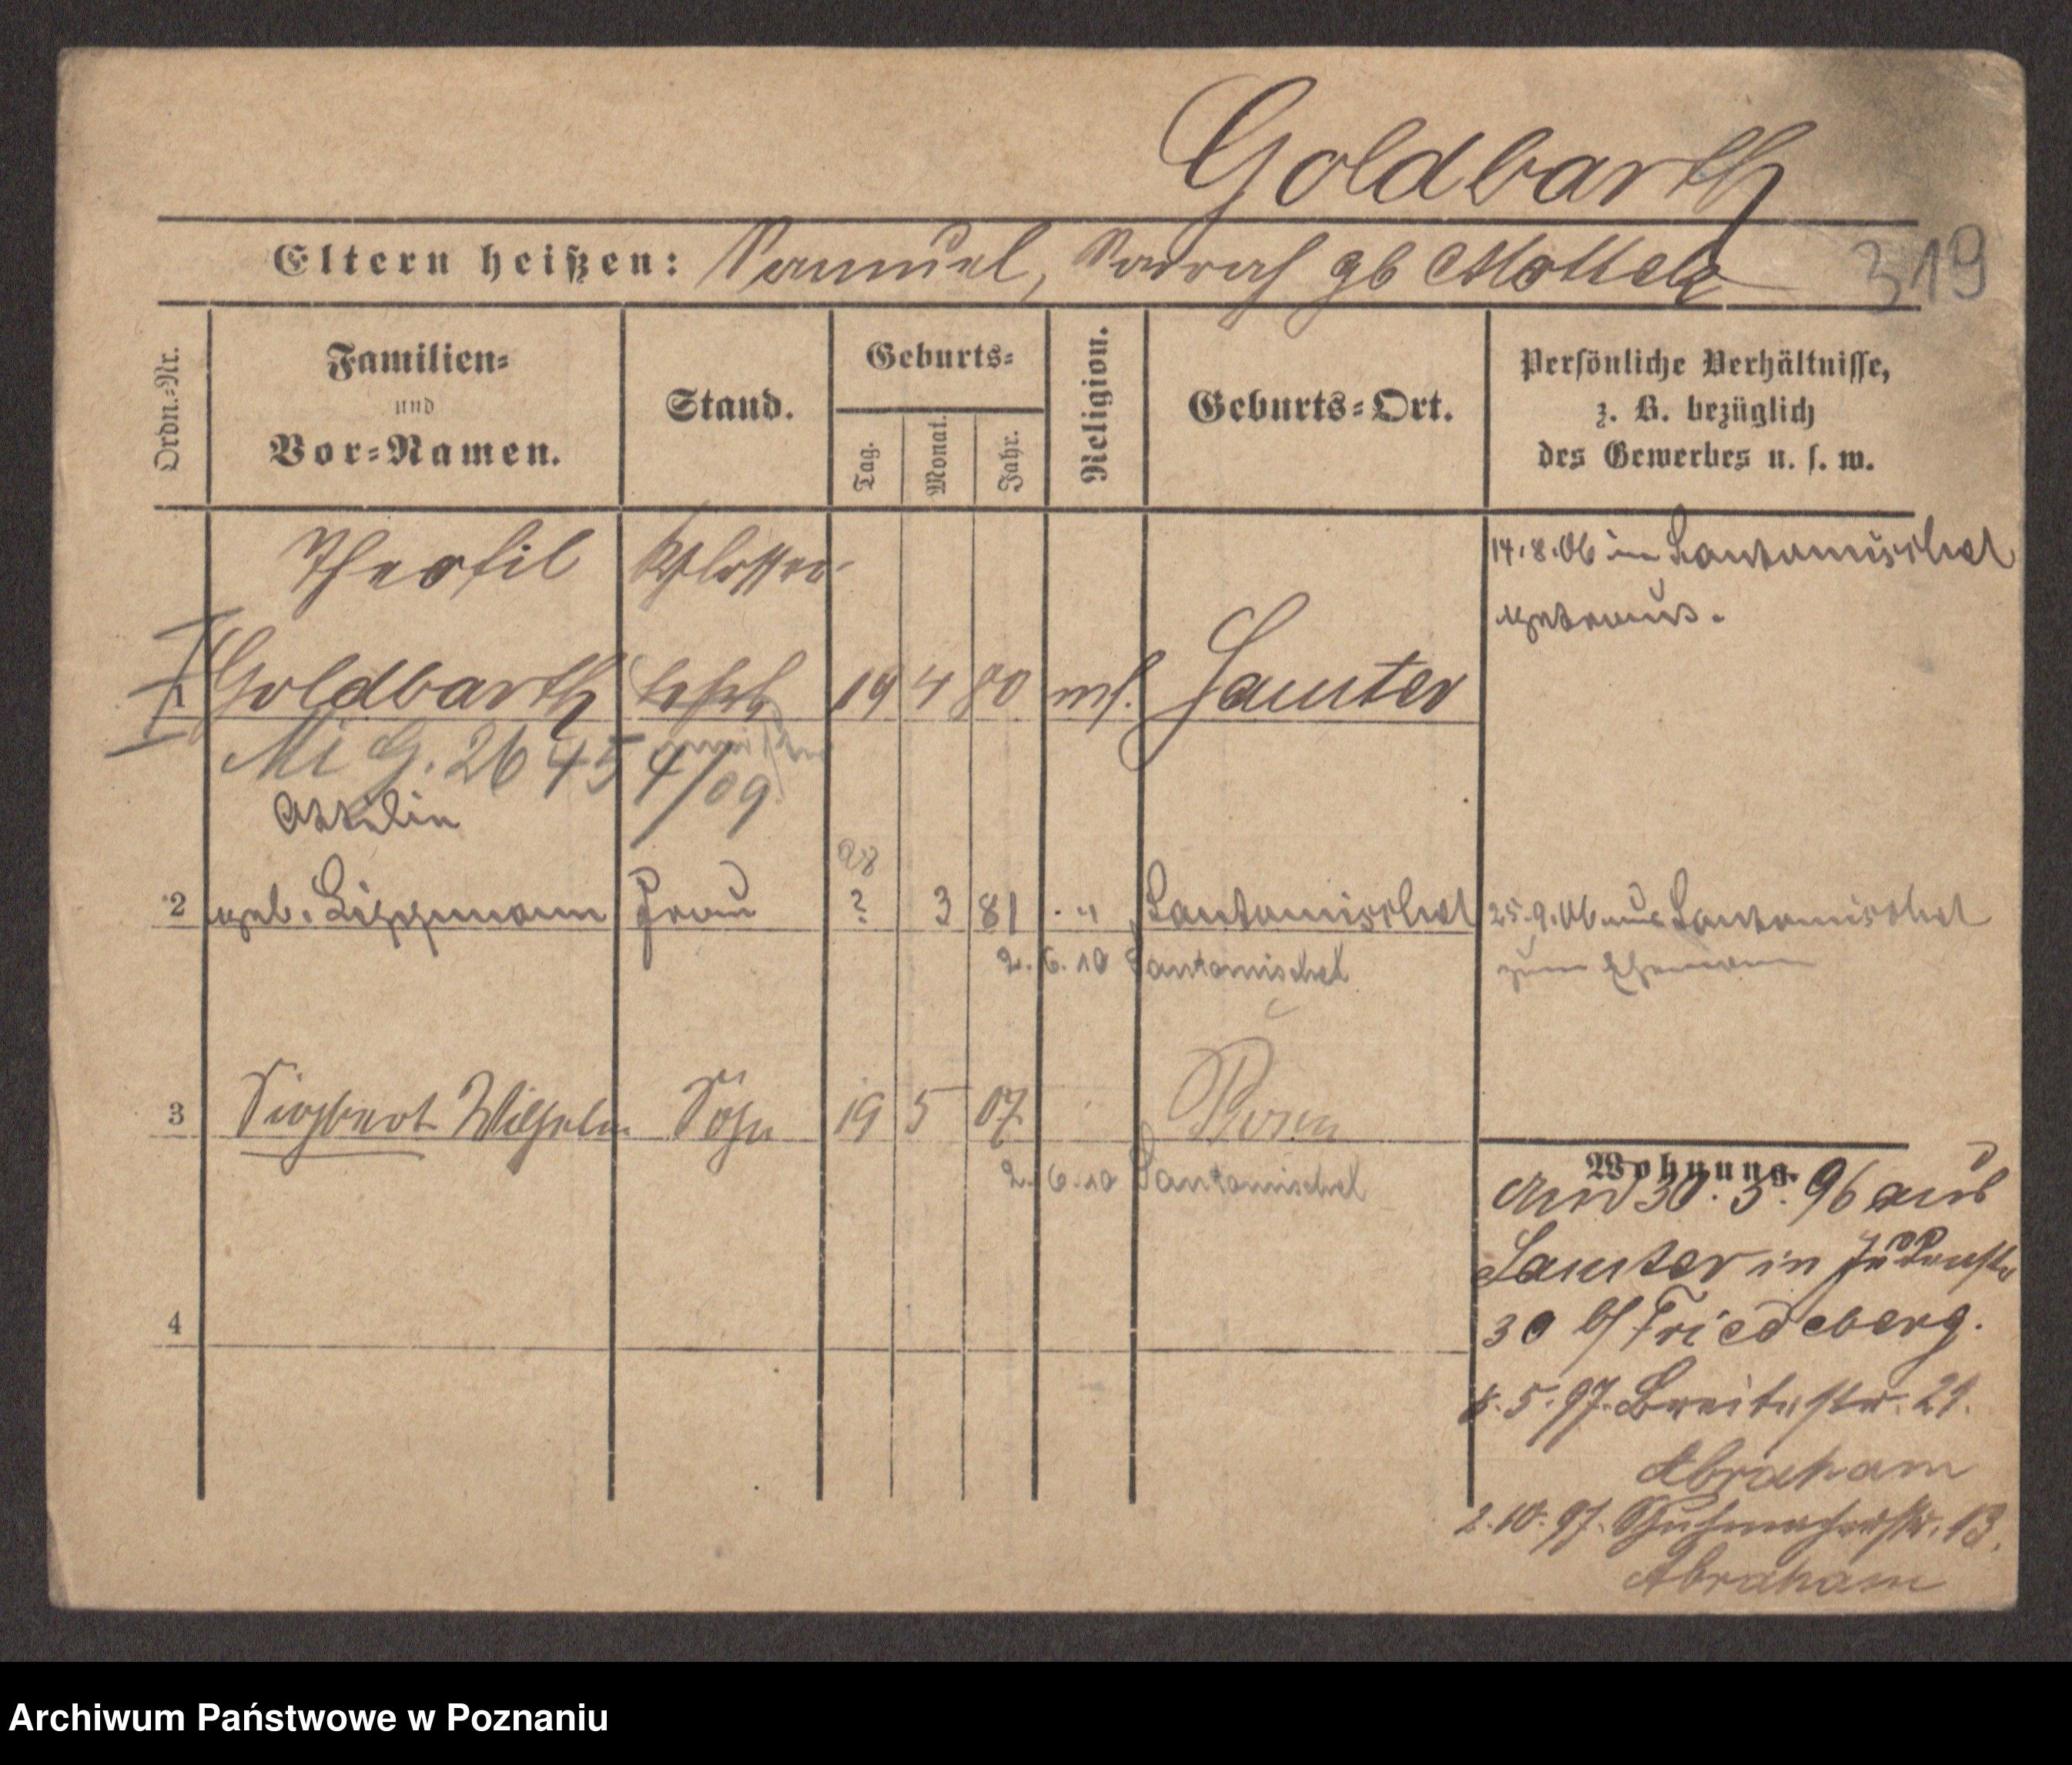 Goldbarth
Eltern heißen: Samuel, Sarah gb Mottek
319
Ordn.=Nr.
Familien=
und
Vor=Namen.
Stand.
Geburts=
Tag.
Monat.
Jahr.
Religion.
Geburts=Ort.
Persönliche Verhältnisse,
z. B. bezüglich
des Gewerbes u. s. w.
Theofil Schlosser-
14.8.06 in Santomischel
getraut.
Goldbarth 19 4 80 ms. Samter
Mi G. 2645 4/09
28
2 geb. Lippmann Frau ? 3 81 " Santomischel 25.9.06 aus Santomischel
2. 6. 10 Santomischel
zum Ehemann
3 Siegbert Wilhelm Sohn 19 5 07 Posen
2. 6. 10 Santomischel
4
Wohnung.
30. 3. 96 aus
Samter in Judenstr
30 b/ Friedeberg.
5. 97. Breitestr. 21.
Abraham
2. 10. 97. Schuhmacherstr. 13.
Abraham
Archiwum Państwowe w Poznaniu